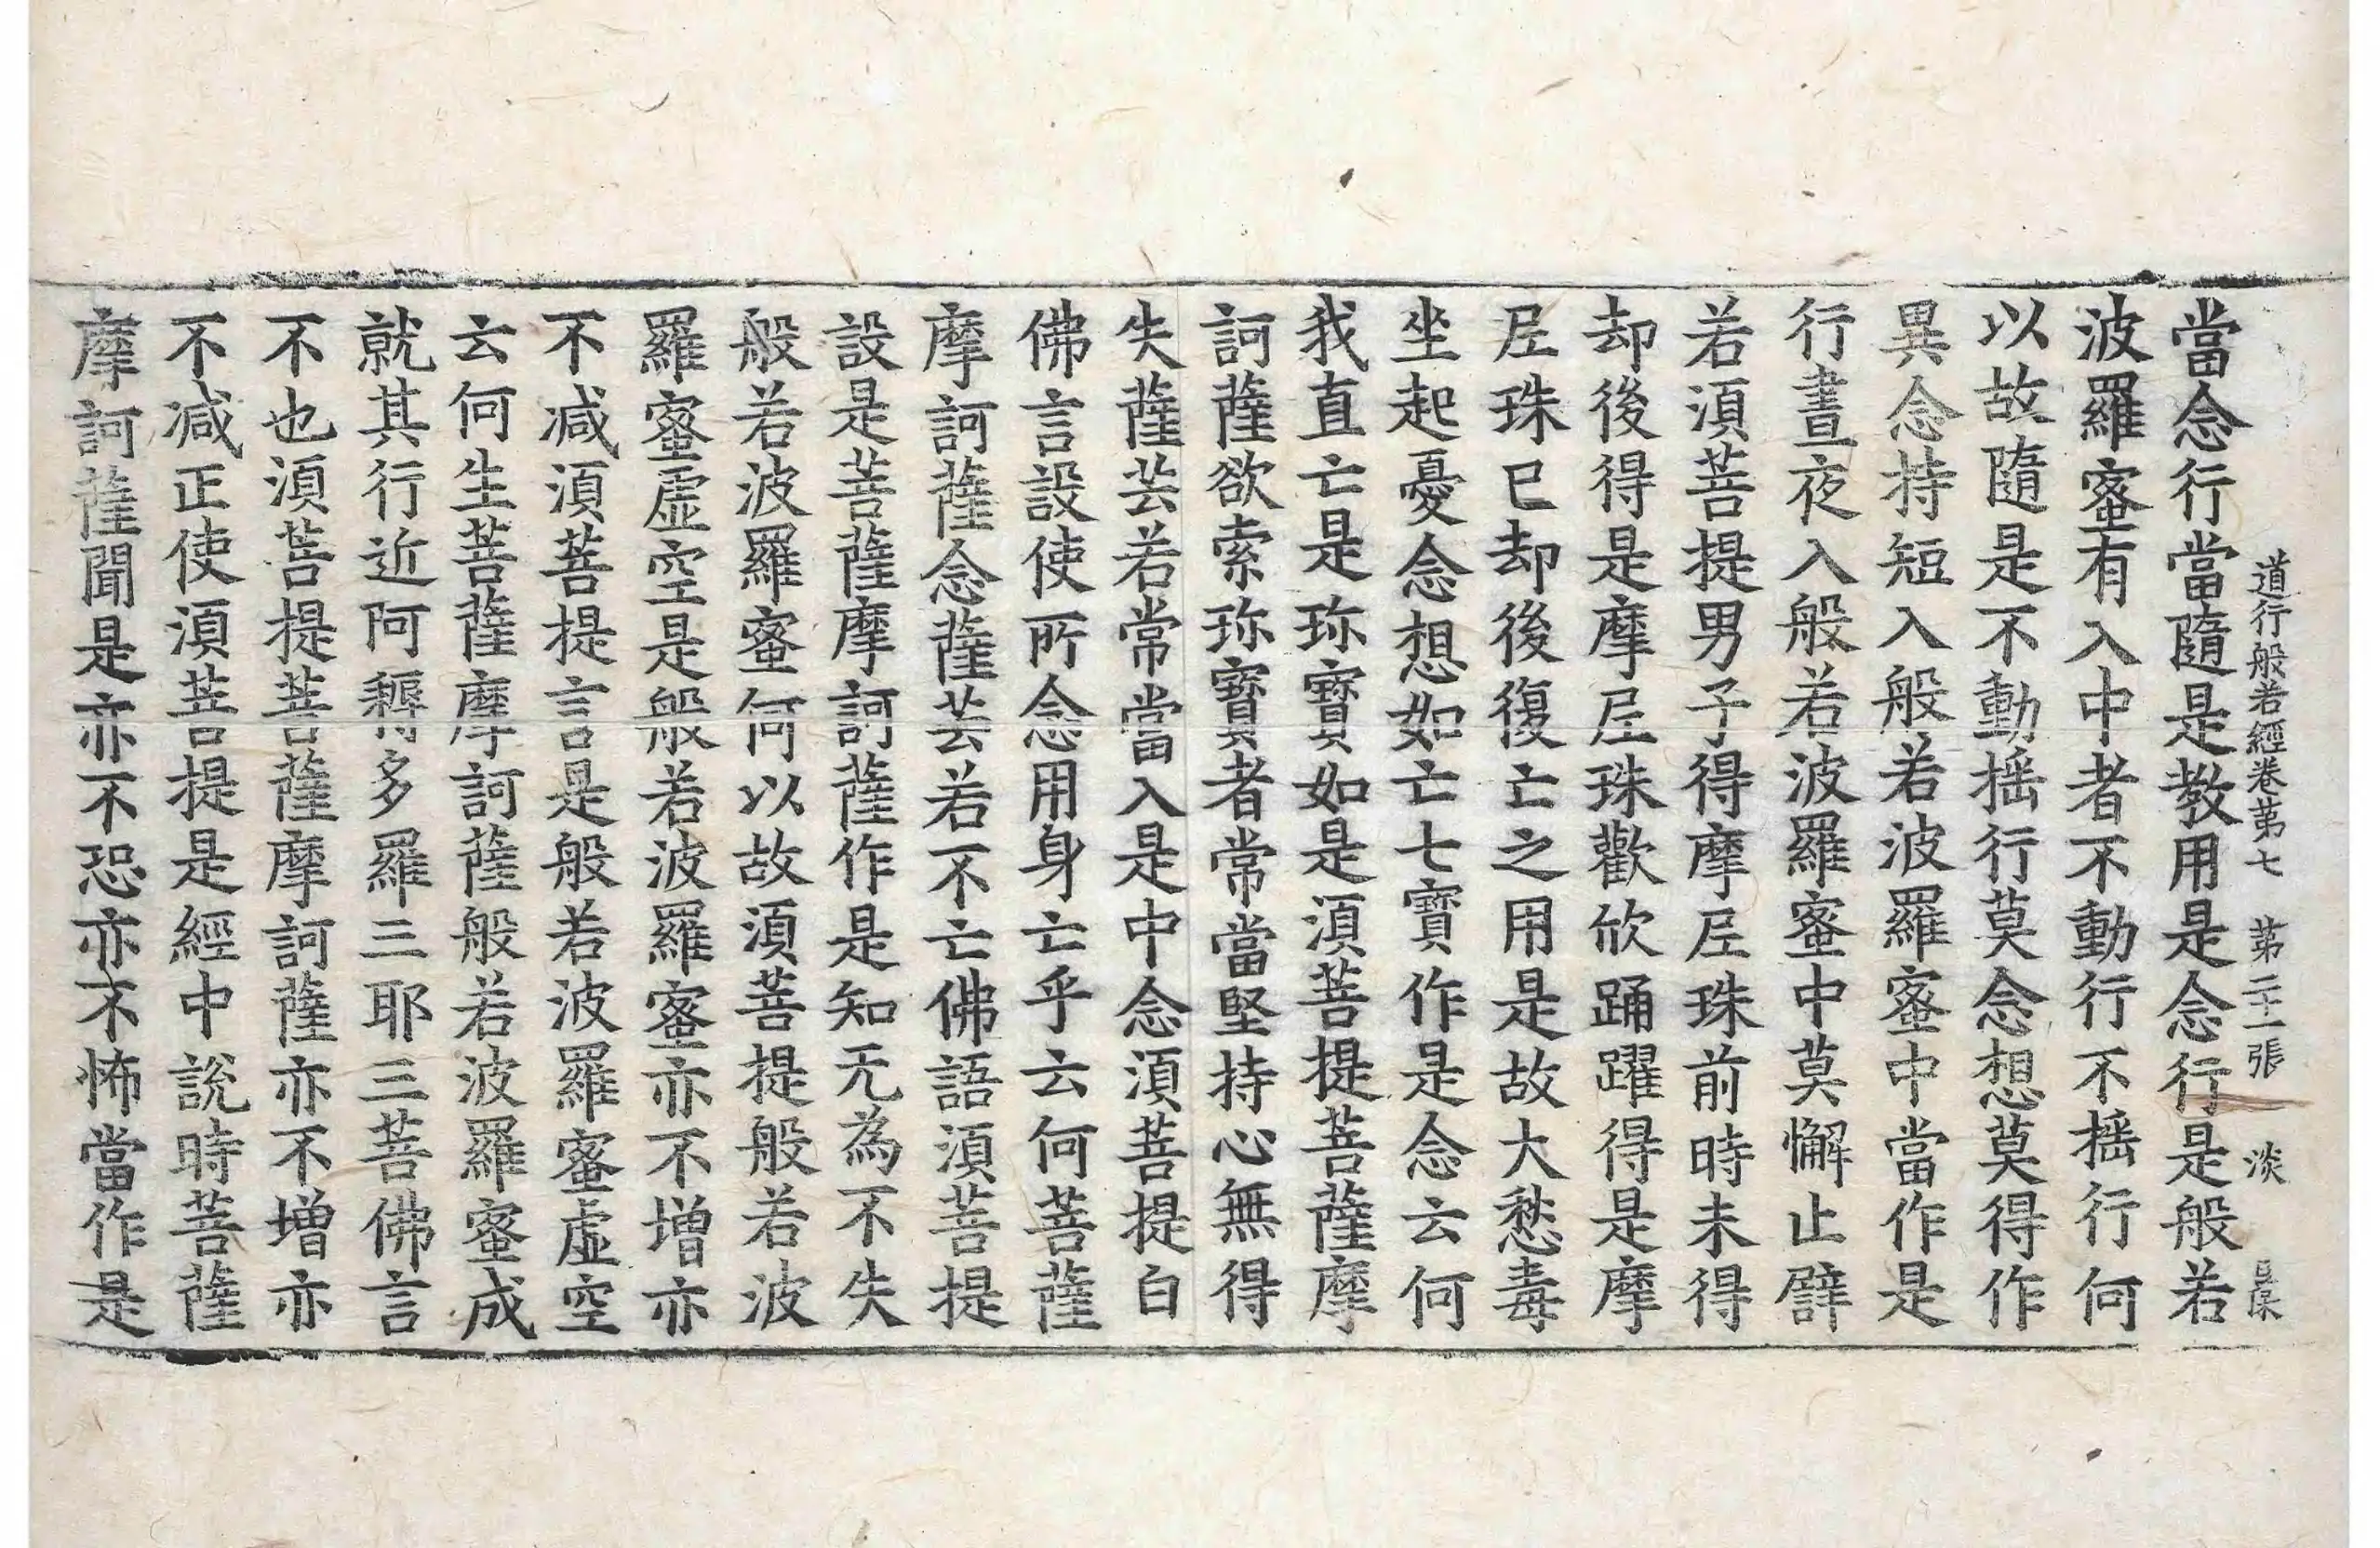 道行般若經卷第七　第二十一張　淡
當念行當隨是教用是念行是般若
波羅蜜有入中者不動行不揺行何
以故隨是不動揺行莫念想莫得作
異念持短入般若波羅蜜中當作是
行晝夜入般若波羅蜜中莫懈止譬
若湏菩提男子得摩尼珠前時未得
却後得是摩尼珠歡欣踊躍得是摩
尼珠已却後復亡之用是故大愁毒
坐起憂念想如亡七寶作是念云何
我直亡是珎寶如是湏菩提菩薩摩
訶薩欲索珎寶者常當堅持心無得
失薩芸若常當入是中念湏菩提白
佛言設使所念用身亡乎云何菩薩
摩訶薩念薩芸若不亡佛語湏菩提
設是菩薩摩訶薩作是知无為不失
般若波羅蜜何以故湏菩提般若波
羅蜜虛空是般若波羅蜜亦不增亦
不減湏菩提言是般若波羅蜜虛空
云何生菩薩摩訶薩般若波羅蜜成
就其行近阿耨多羅三耶三菩佛言
不也湏菩提菩薩摩訶薩亦不增亦
不減正使湏菩提是經中說時菩薩
摩訶薩聞是亦不恐亦不怖當作是